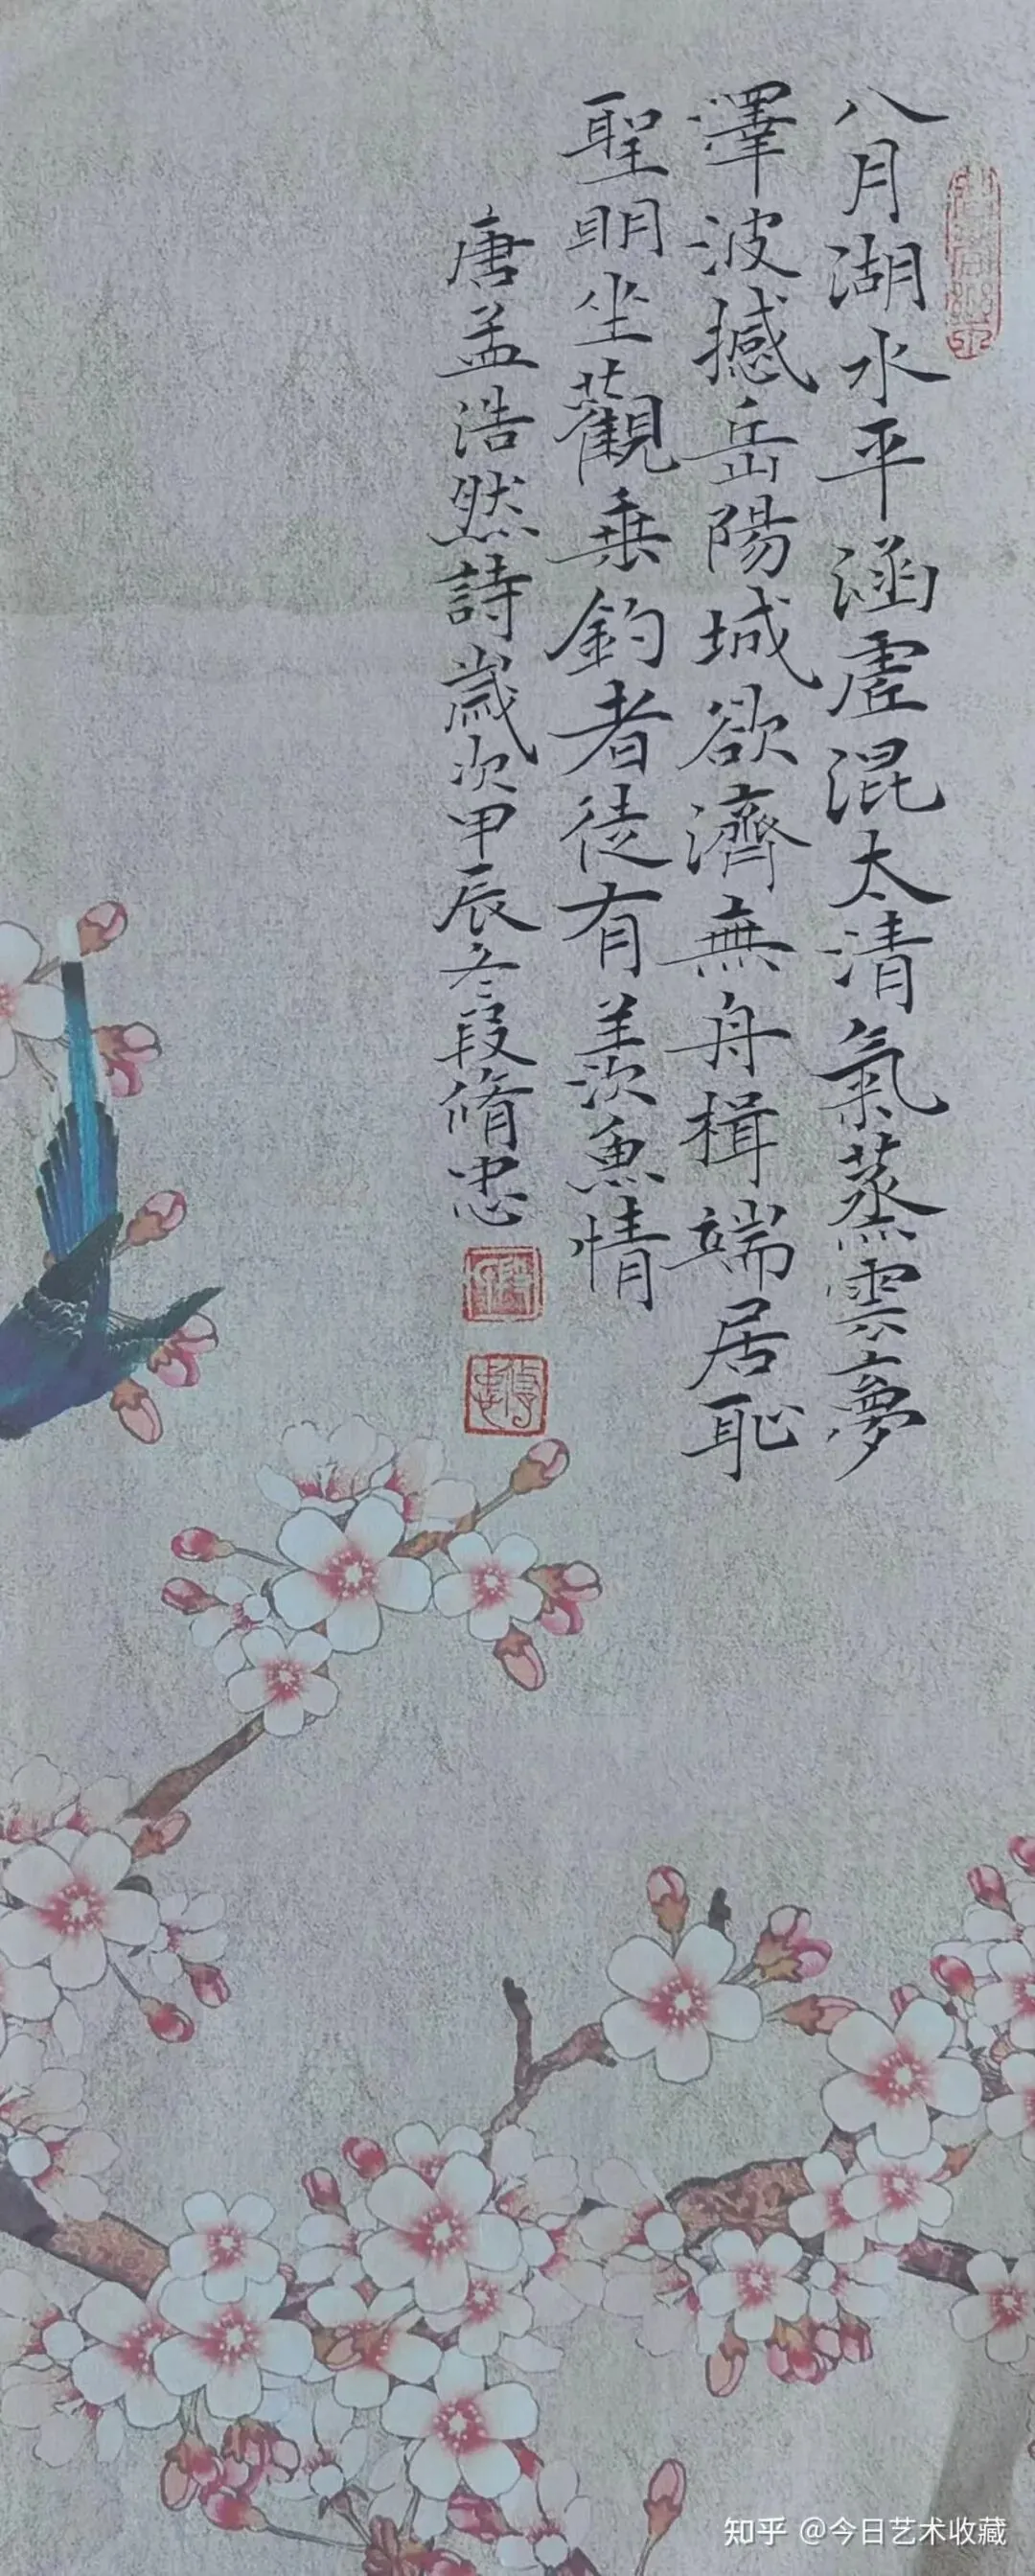 八月湖水平涵虛混太清氣蒸雲夢
澤波撼岳陽城欲濟無舟楫端居恥
聖明坐觀乗釣者徒有羨魚情
唐孟浩然詩歲次甲辰冬段脩忠
知乎 @今日艺术收藏